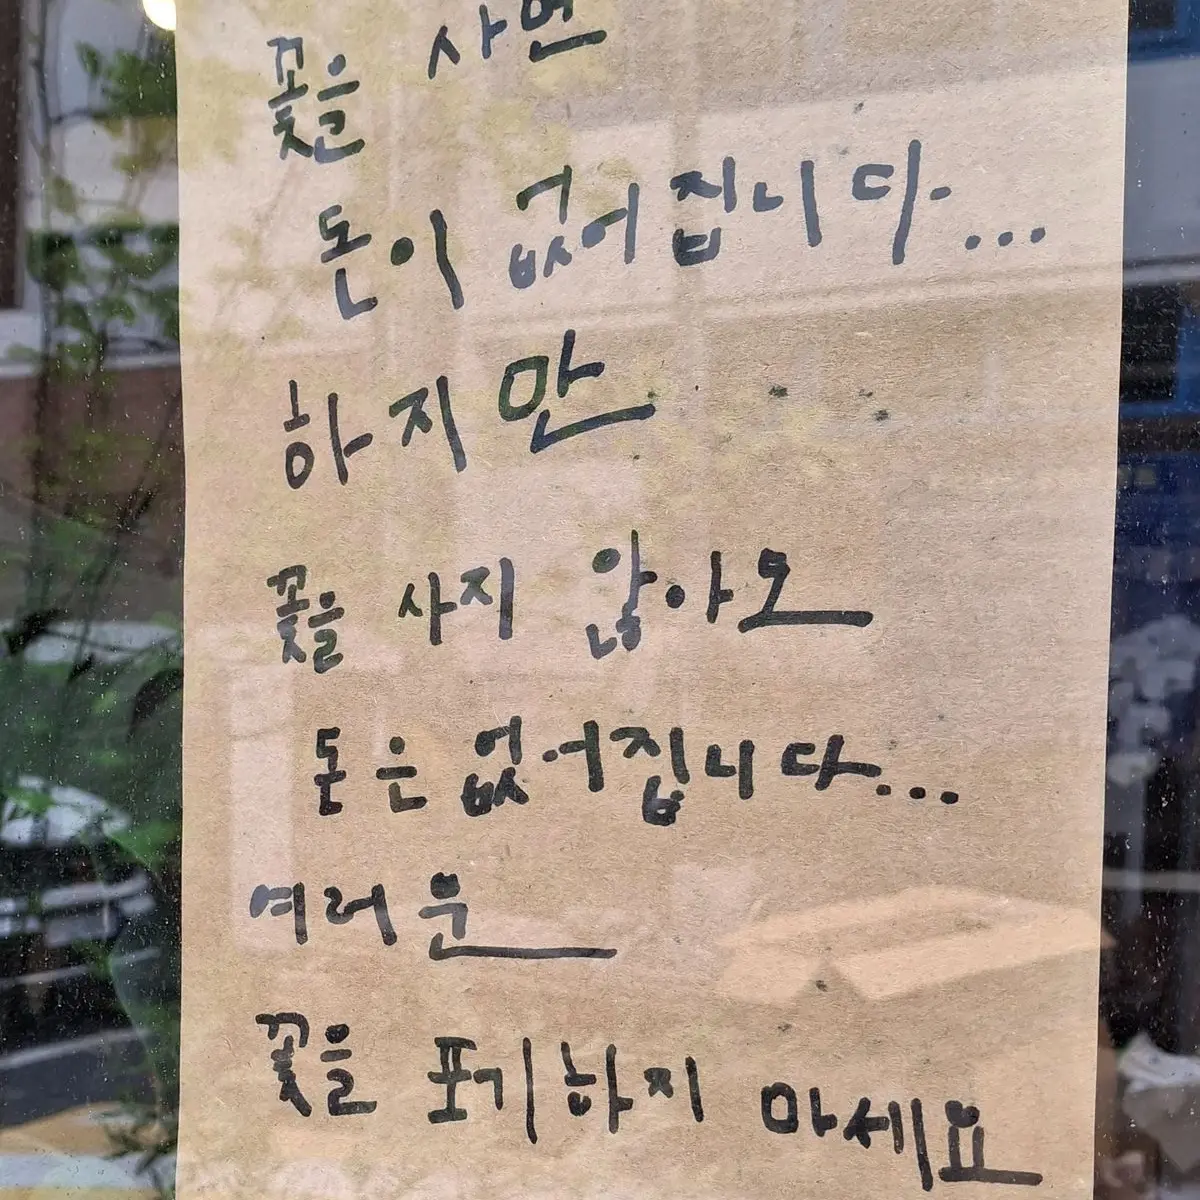 꽃을 사면
돈이 없어집니다...
하지만
꽃을 사지 않아도
돈은 없어집니다...
여러운
꽃을 포기하지 마세요